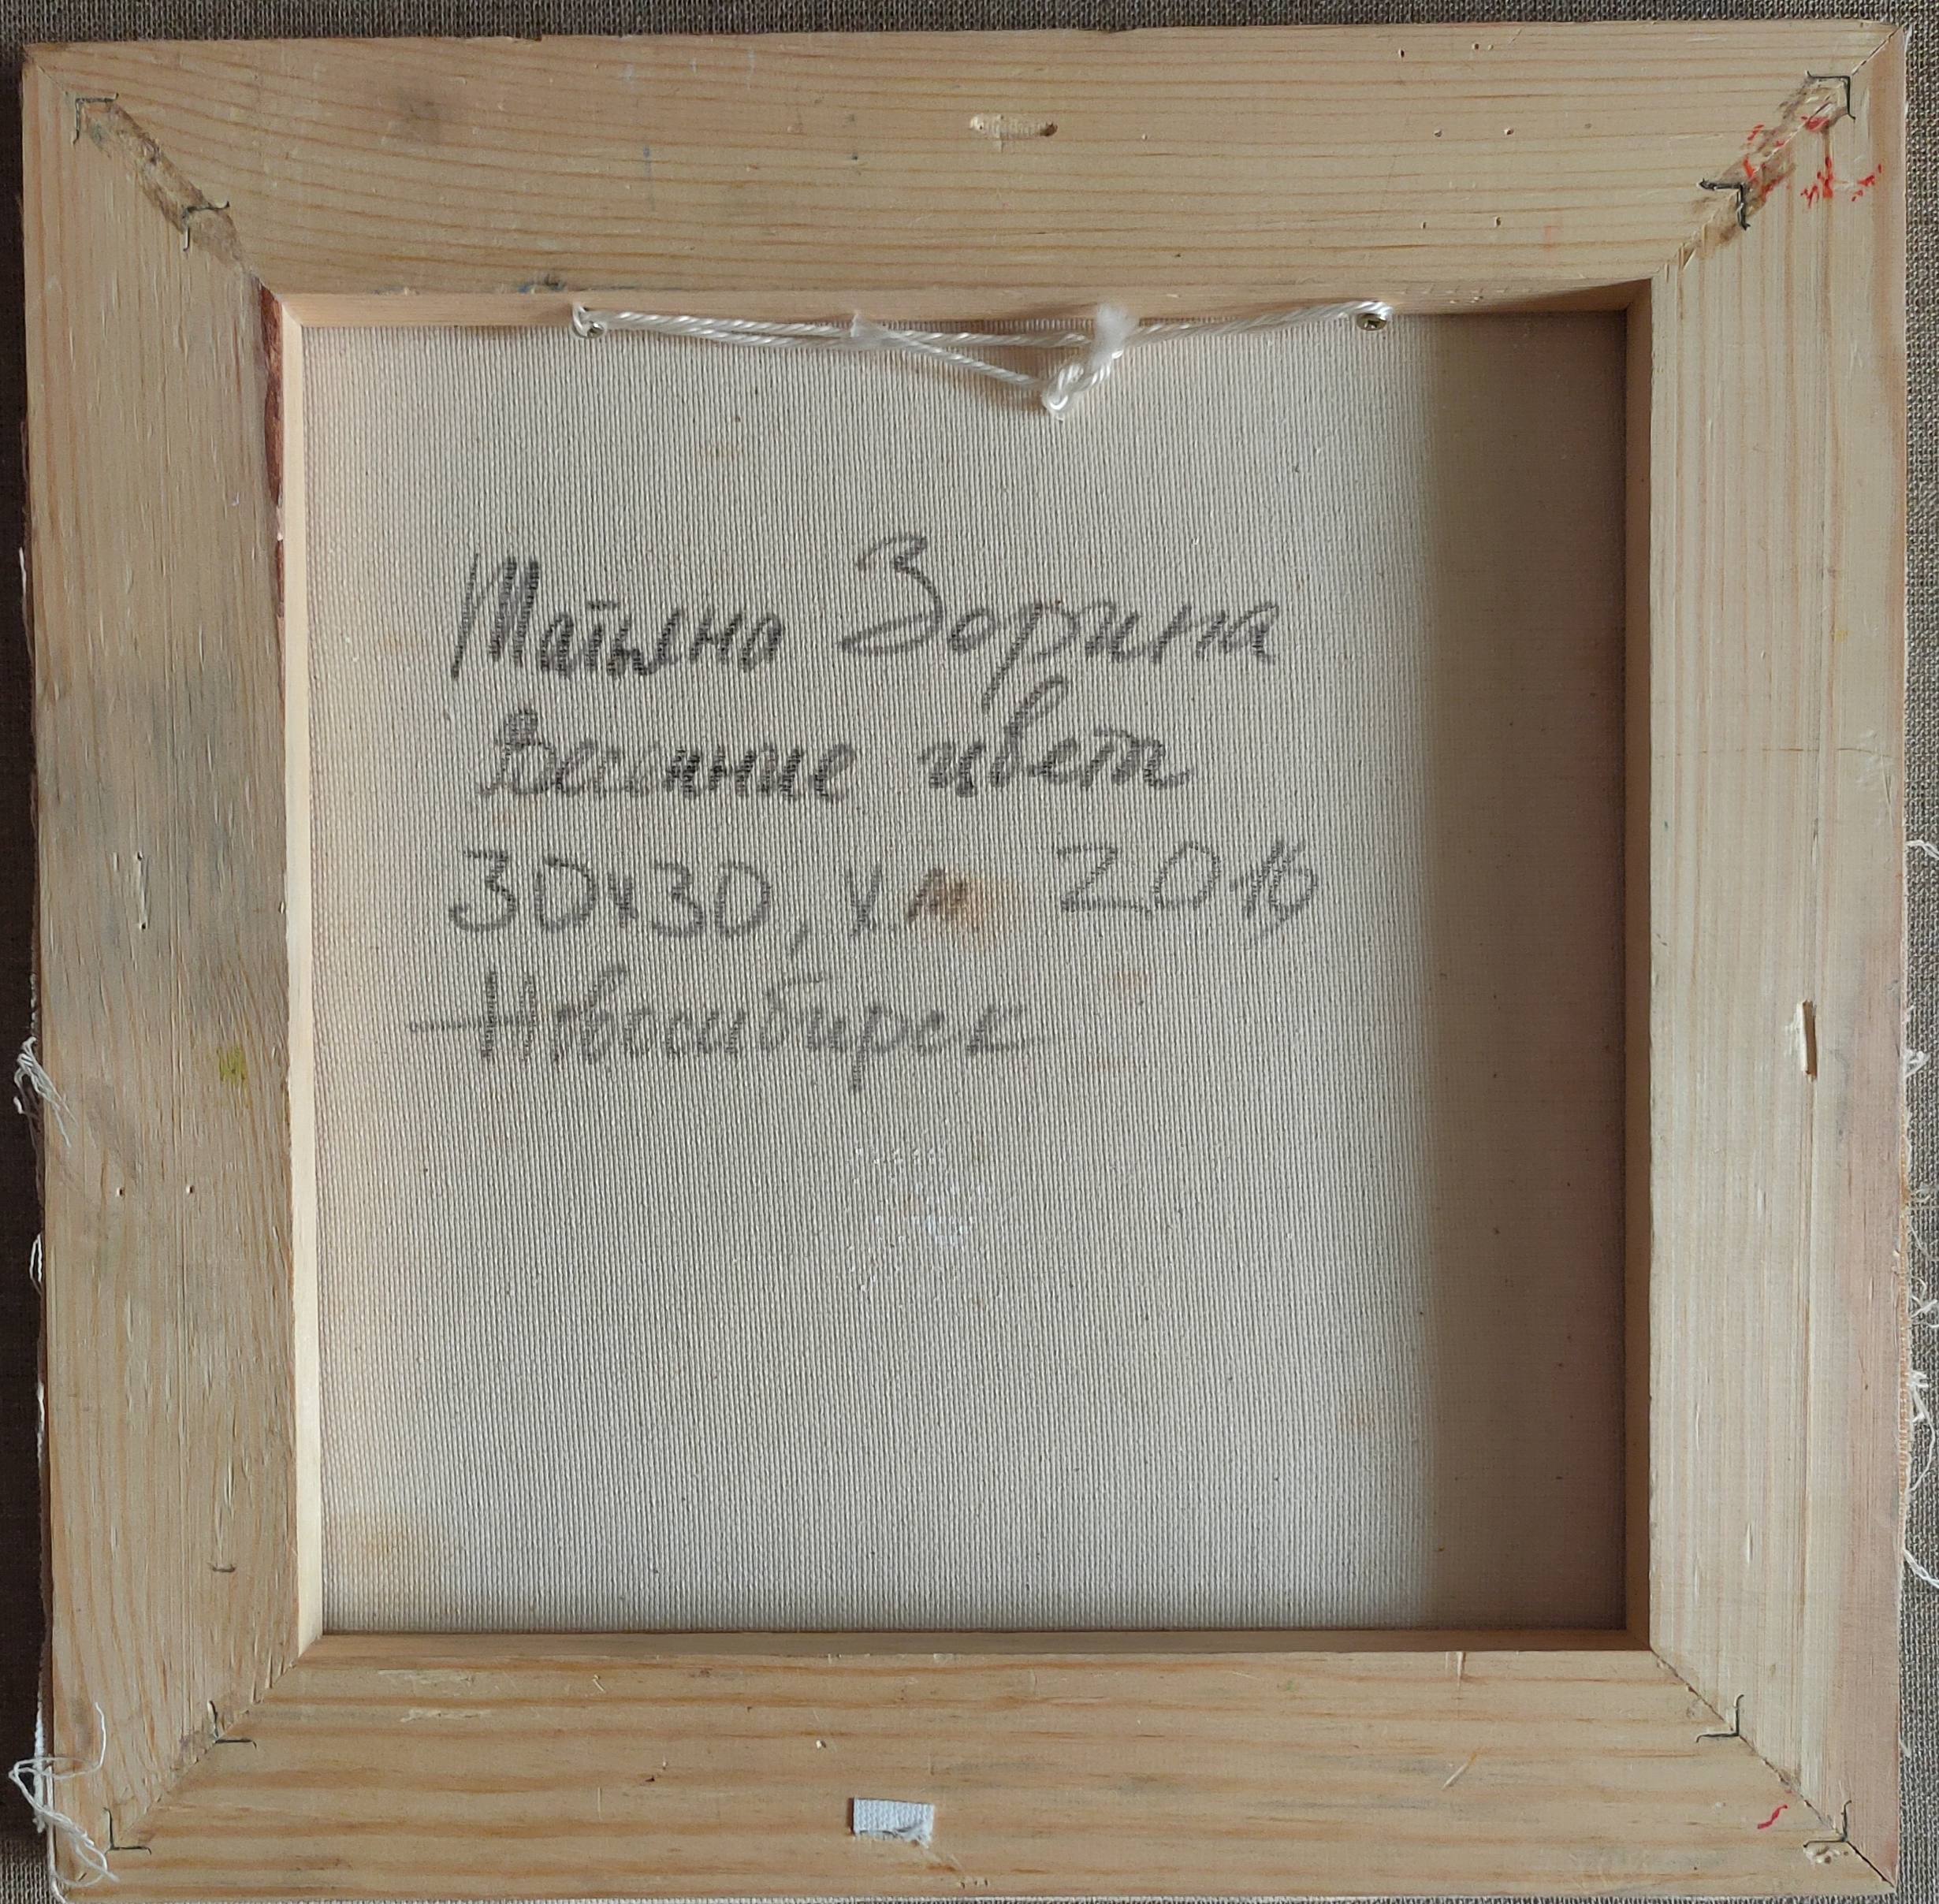 Татьяна Зорина
Весенние цвета
30х30, х.м 2016
Новосибирск